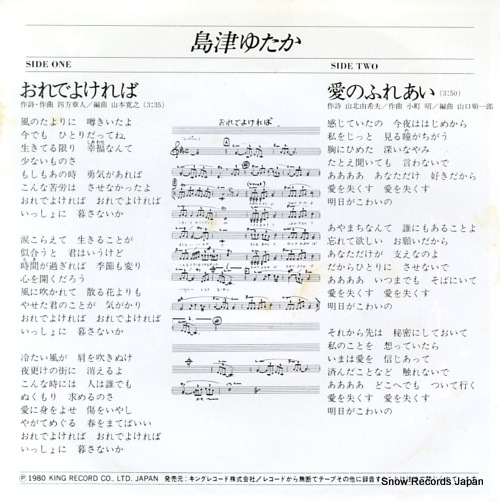 島津ゆたか
SIDE ONE
おれでよければ
作詩・作曲 四方章人／編曲 山本寛之 (3:35)
風のたよりに 噂きいたよ
今でも ひとりだってね
生きてる限り 幸福なんて
少ないものさ
もしもあの時 勇気があれば
こんな苦労は させなかったよ
おれでよければ おれでよければ
いっしょに 暮さないか
涙こらえて 生きることが
似合うと 君はいうけど
時間が過ぎれば 季節も変り
心を開くだろう
風に吹かれて 散る花よりも
やせた君のことが 気がかり
おれでよければ おれでよければ
いっしょに 暮さないか
冷たい風が 肩を吹きぬけ
夜更けの街に 消えるよ
こんな時には 人は誰でも
ぬくもり 求めるのさ
愛に身をよせ 傷をいやし
やがてめぐる 春をまてばいい
おれでよければ おれでよければ
いっしょに 暮さないか
おれでよければ
SIDE TWO
愛のふれあい (3:50)
作詩 山北由希夫／作曲 小町 昭／編曲 山口順一郎
感じていたの 今夜ははじめから
私をじっと 見る瞳がちがう
胸にひめた 深いなやみ
たとえ聞いても 言わないで
ああああ あなただけ 好きだから
愛を失くす 愛を失くす
明日がこわいの
あやまちなんて 誰にもあることよ
忘れて欲しい お願いだから
あなただけが 支えなのよ
だからひとりに させないで
ああああ いつまでも そばにいて
愛を失くす 愛を失くす
明日がこわいの
それから先は 秘密にしておいて
私のことを 想っていたら
いまは愛を 信じあって
済んだことなど 触れないで
ああああ どこへでも ついて行く
愛を失くす 愛を失くす
明日がこわいの
Ⓟ 1980 KING RECORD CO., LTD. JAPAN 発売元：キングレコード株式会社／レコードから無断でテープその他に録音す
Snow Records Japan